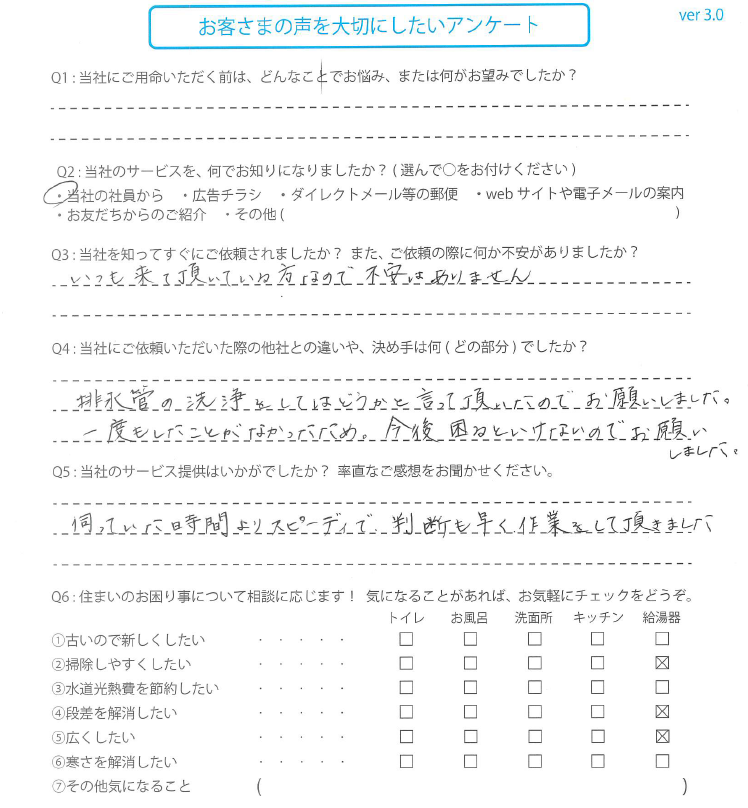 お客さまの声を大切にしたいアンケート
ver 3.0
Q1 : 当社にご用命いただく前は、どんなことでお悩み、または何がお望みでしたか？
Q2 : 当社のサービスを、何でお知りになりましたか？ ( 選んで○をお付けください )
・当社の社員から ・広告チラシ ・ダイレクトメール等の郵便 ・web サイトや電子メールの案内
・お友だちからのご紹介 ・その他 ( )
Q3 : 当社を知ってすぐにご依頼されましたか？ また、ご依頼の際に何か不安がありましたか？
いつも来て頂いている方なので不安はありません
Q4 : 当社にご依頼いただいた際の他社との違いや、決め手は何 ( どの部分 ) でしたか？
排水管の洗浄をしてはどうかと言って頂いたのでお願いしました。
一度もしたことがなかったため。今後困るといけないのでお願い
しました。
Q5 : 当社のサービス提供はいかがでしたか？ 率直なご感想をお聞かせください。
伺っていた時間よりスピーディで、判断も早く作業をして頂きました
Q6 : 住まいのお困り事について相談に応じます！ 気になることがあれば、お気軽にチェックをどうぞ。
トイレ お風呂 洗面所 キッチン 給湯器
①古いので新しくしたい ・・・・・ □ □ □ □ □
②掃除しやすくしたい ・・・・・ □ □ □ □ ☒
③水道光熱費を節約したい ・・・・・ □ □ □ □ □
④段差を解消したい ・・・・・ □ □ □ □ ☒
⑤広くしたい ・・・・・ □ □ □ □ ☒
⑥寒さを解消したい ・・・・・ □ □ □ □ □
⑦その他気になること ( )